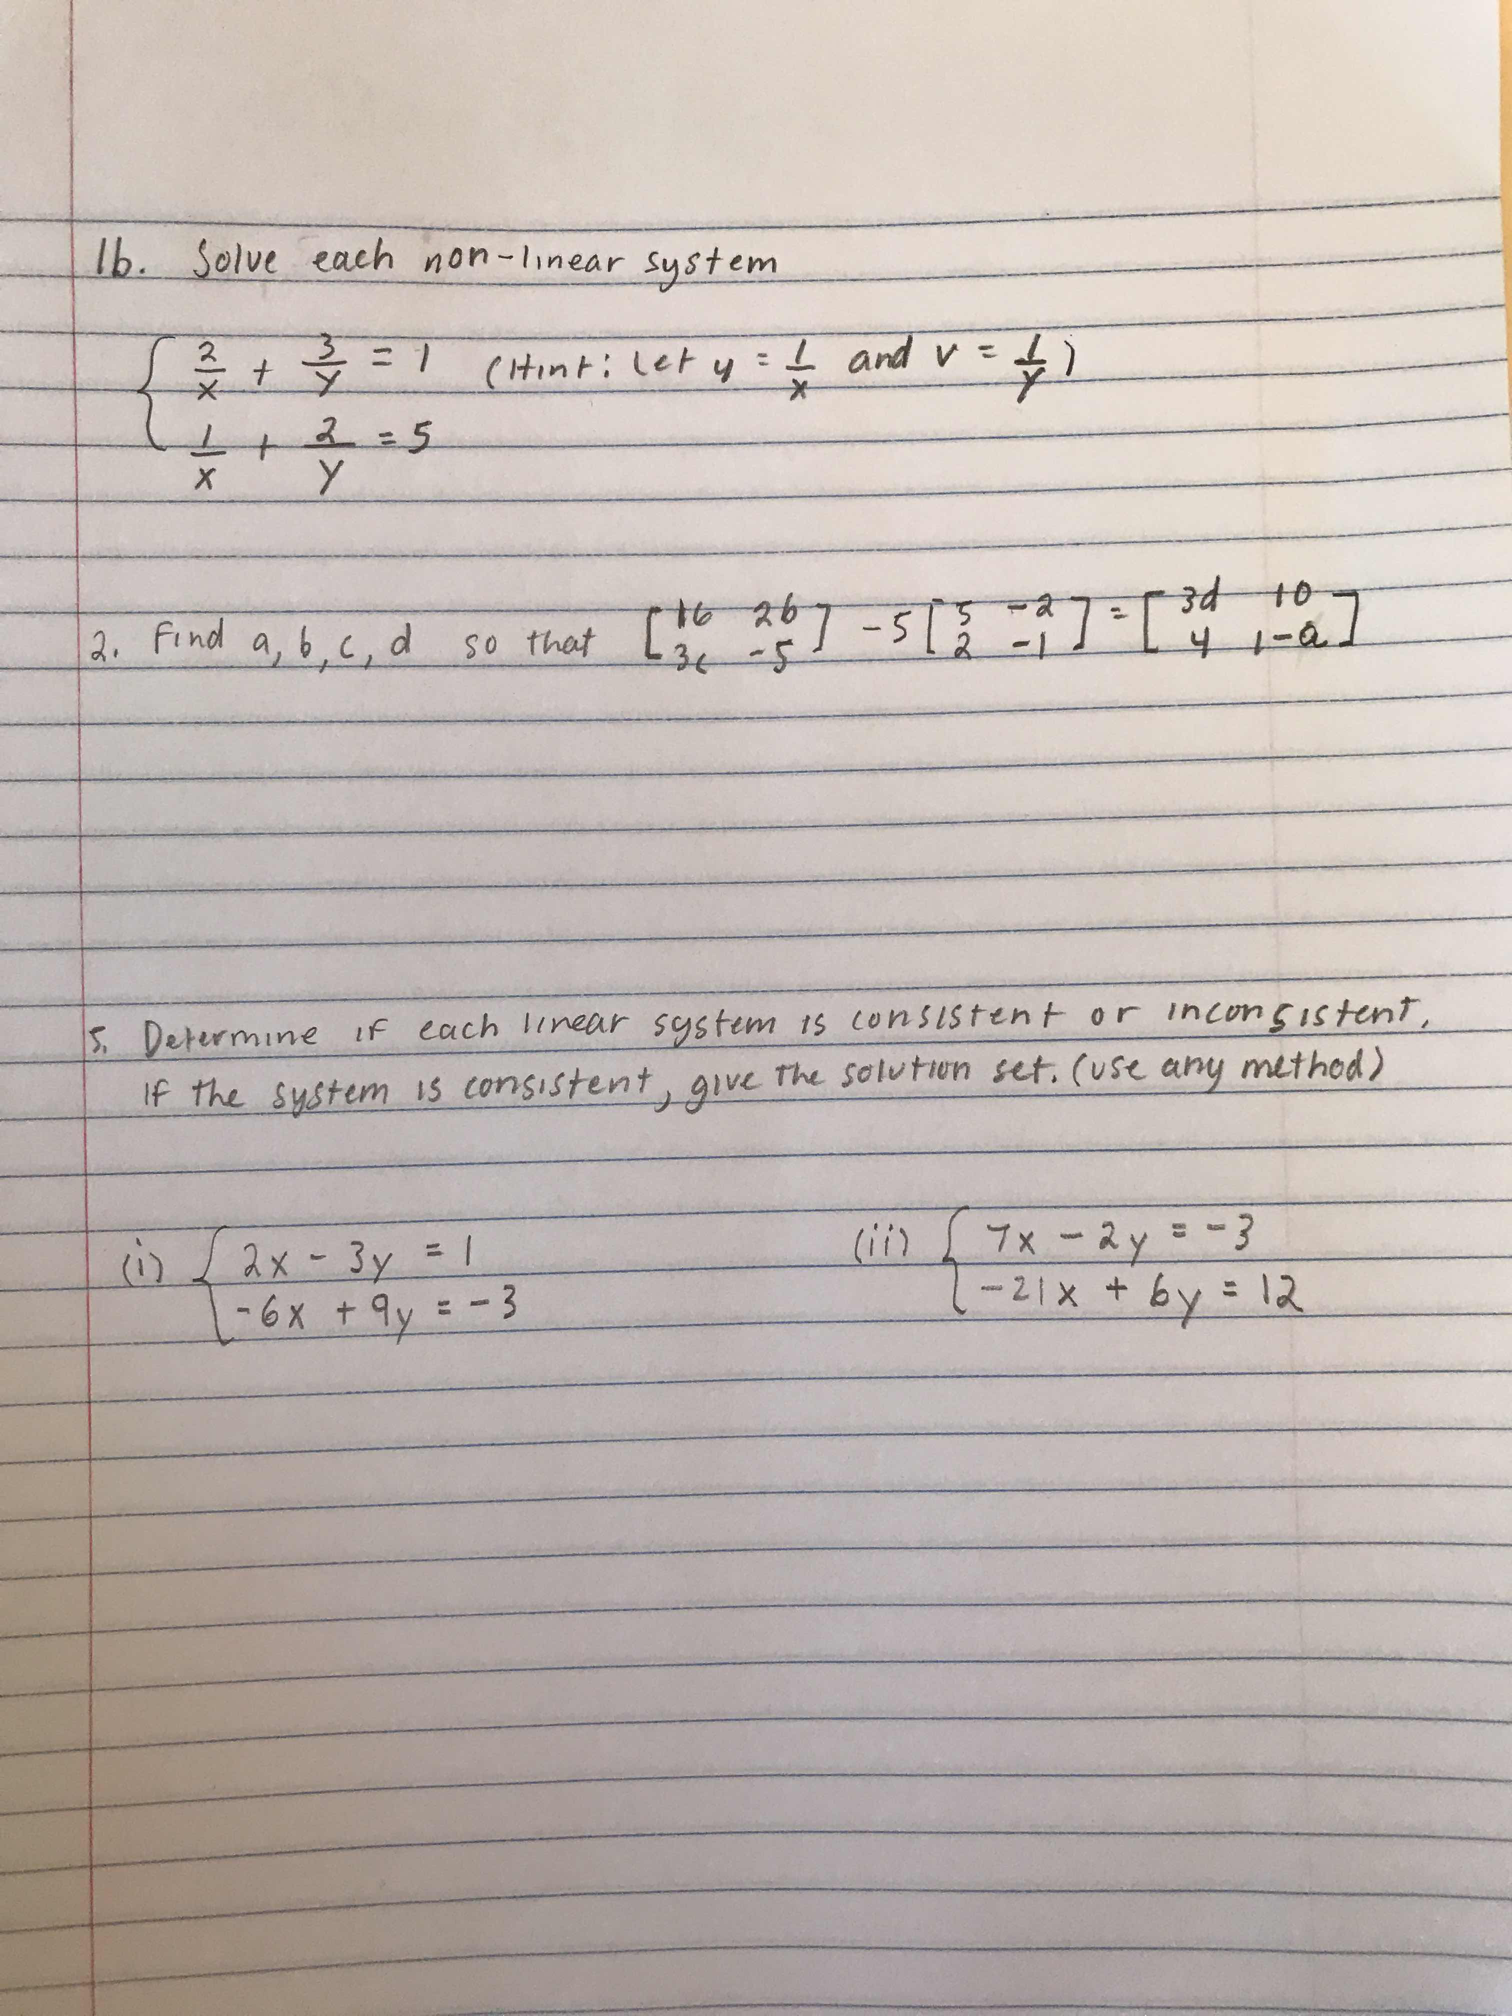 1b. Solve each non-linear system
{ 2/x + 3/y = 1 (Hint: Let u = 1/x and v = 1/y)
1/x + 2/y = 5
2. Find a, b, c, d so that [16 2b; 3c -5] - 5 [5 -2; 2 -1] = [3d 10; 4 1-a]
5. Determine if each linear system is consistent or inconsistent.
If the system is consistent, give the solution set. (use any method)
(i) { 2x - 3y = 1
-6x + 9y = -3
(ii) { 7x - 2y = -3
-21x + 6y = 12